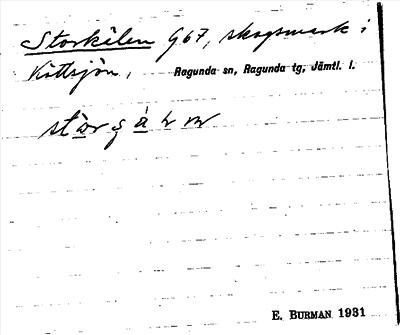 Storkälen 967, skogsmark i
Köttsjön, Ragunda sn, Ragunda tg, Jämtl. l.
E. BURMAN 1931